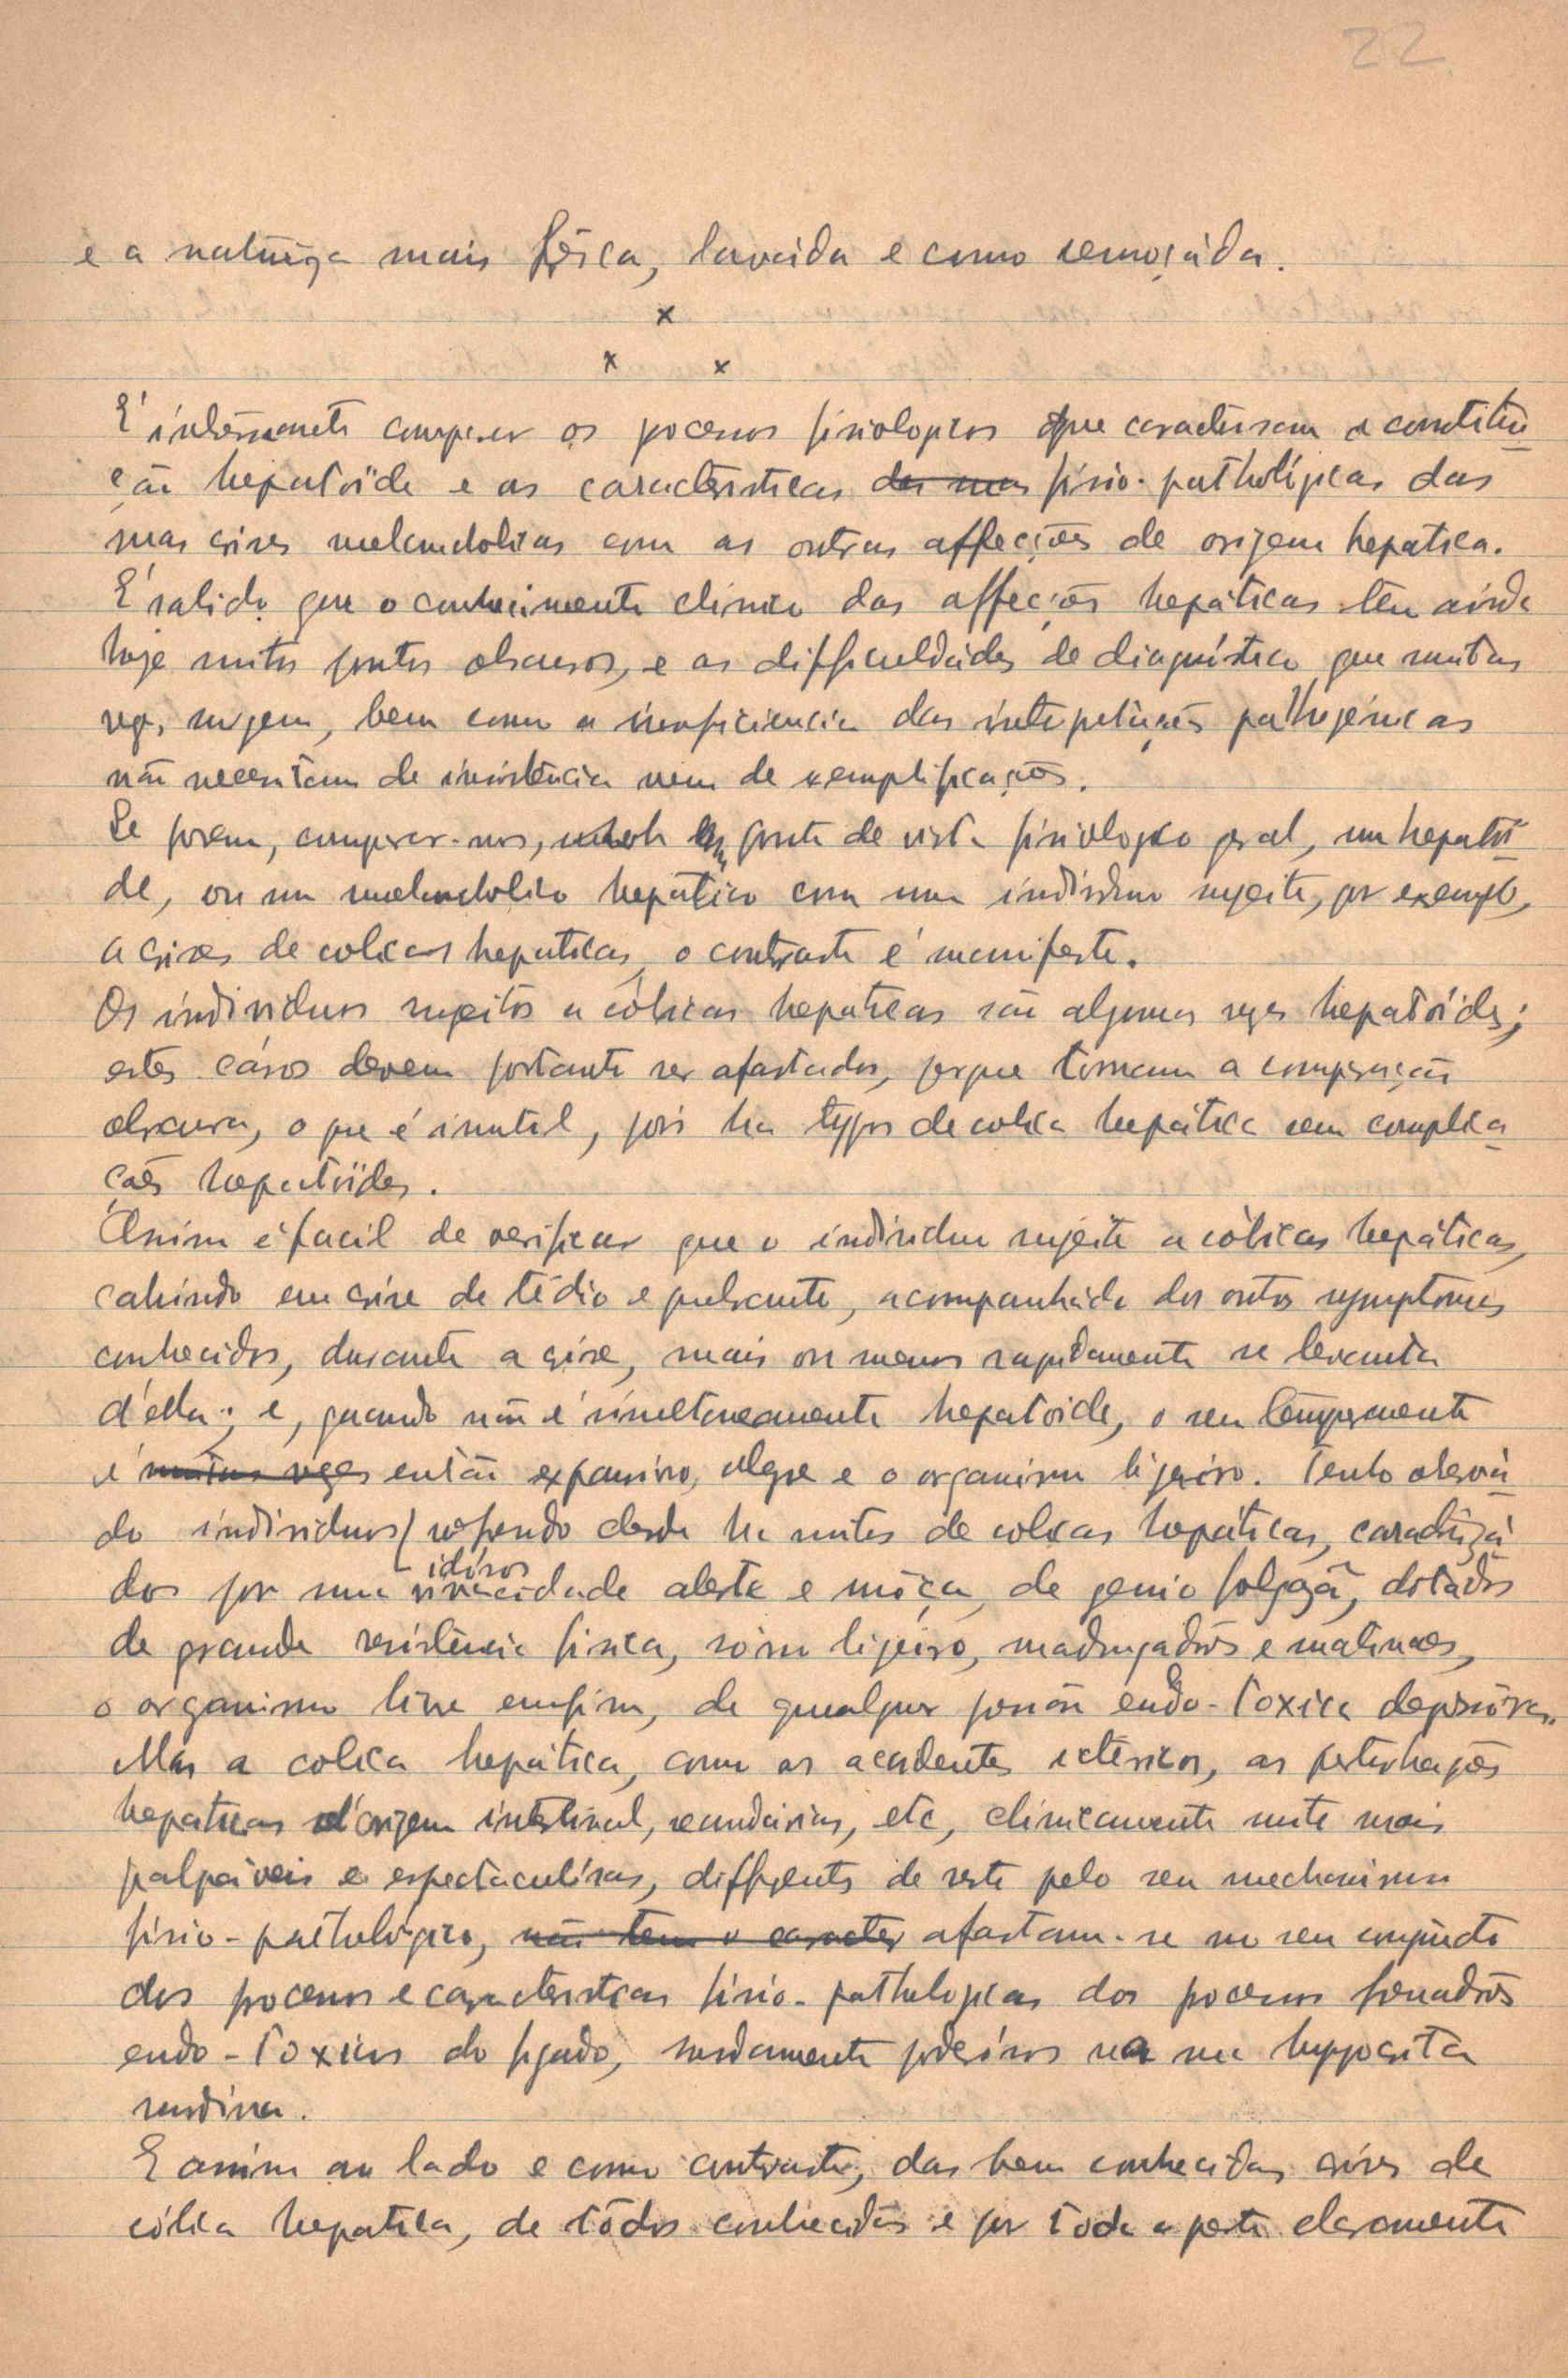 22
e a natureza mais fresca, lavada e como remoçada.
x
x x
E' interessante comparar os processos fisiologicos que caracterisam a constitui
ção hepatoïde e as caracteristicas das suas fisio-pathológicas das
suas crises melancholicas com as outras affecções de origem hepatica.
E' sabido que o conhecimento clinico das affecções hepáticas tem ainda
hoje muitos pontos obscuros, e as difficuldádes de diagnóstico que muitas
vezes surgem, bem como a insuficiencia das interpretações pathogénicas
não necessitam de insistência nem de exemplificações.
Se porem, comparar-mos, sob ponto de vista fisiologico geral, um hepatoï
de, ou um melancholico hepático com um individuo sujeito, por exemplo,
a crises de colicas hepaticas, o contraste é manifesto.
Os individuos sujeitos a cólicas hepaticas são algumas vezes hepatóides;
estes cásos devem portanto ser afastados, porque tornam a comparação
obscura, o que é inutil, pois ha typos de colica hepática sem complica
ções hepatoïdes.
Assim é facil de verificar que o individuo sujeito a cólicas hepáticas,
cahindo em crise de tédio e quebranto, acompanháda dos outros symptomas
conhecidos, durante a crise, mais ou menos rapidamente se levanta
d'ella; e, quando não é simultaneamente hepatoide, o seu temperamento
é muitas vezes então expansivo, alegre e o organismo ligeiro. Tenho observá
do individuos idósos sofrendo desde ha muito de colicas hepáticas, caracterizá
dos por uma vivacidade alerta e môça, de genio folgazã, dotádos
de grande resistência fisica, sôno ligeiro, madrugadôres e matinaes,
o organismo livre emfim, de qualquer pressão endo-toxica depressôra.
Mas a colica hepática, como os accidentes ictéricos, as perturbações
hepaticas d'origem intestinal, secundárias, etc, clinicamente muito mais
palpáveis e espectaculósas, differentes de resto pelo seu mechanismo
fisio-pathológico, não tem o caracter afastam-se no seu conjuncto
dos processos e caracteristicas fisio-pathologicas dos processos pesadôs
endo-toxicos do figado, surdamente poderósos na sua hyppocrita
surdina.
E assim ao lado e como contraste, das bem conhecidas crises de
cólica hepatica, de tôdos conhecidas e por toda a parte claramente